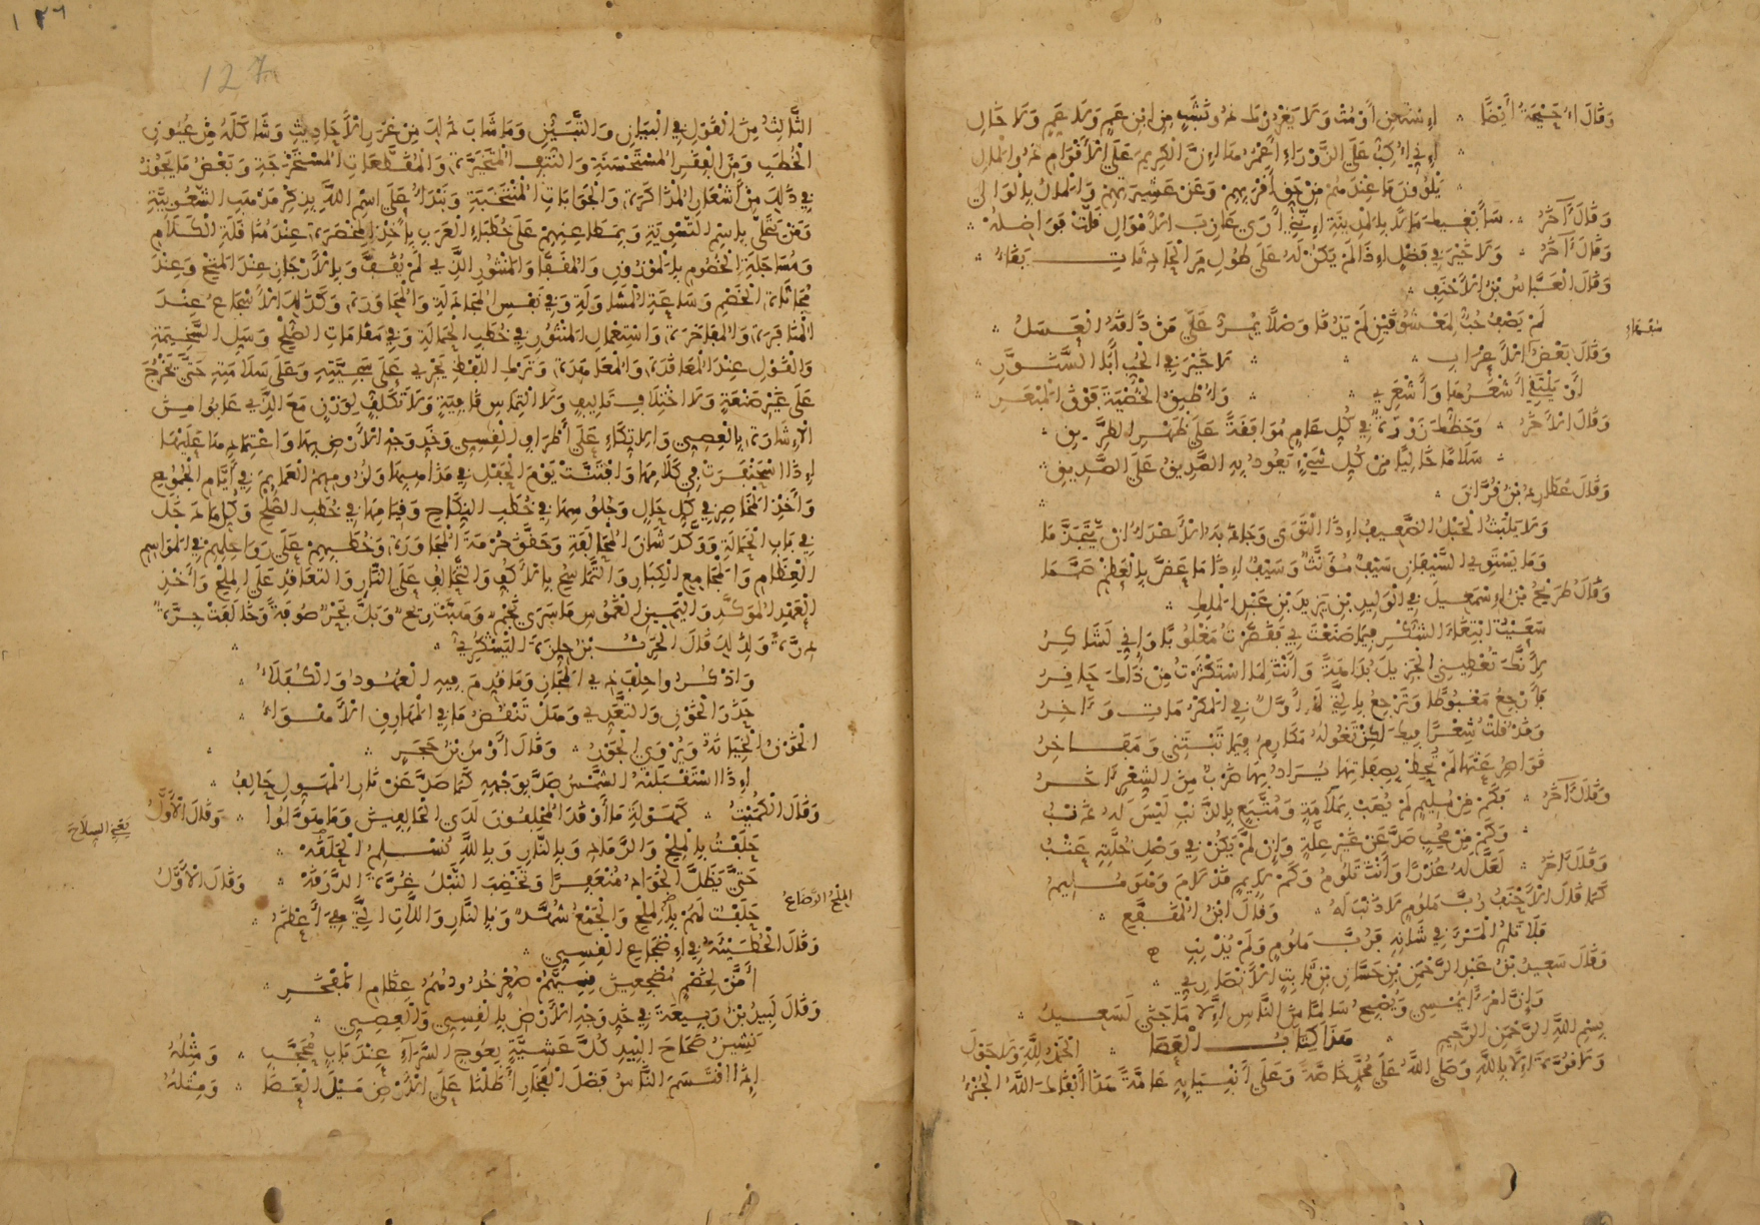 وَقَالَ أُحَيْحَةُ أَيْضًا ∴ اِسْتَغْنِ أَوْ مُتْ وَلَا يَغْرُرْكَ ذُو نَشَبٍ مِنِ ابْنِ عَمٍّ وَلَا عَمٍّ وَلَا خَالِ
∴ إِنِّي أُكِبُّ عَلَى الزَّوْرَاءِ أَعْمُرُهَا إِنَّ الْكَرِيمَ عَلَى الْأَقْوَامِ ذُو الْمَالِ
∴ يَلْوُونَ مَا عِنْدَهُمْ مِنْ حَقِّ أَقْرَبِهِمْ وَعَنْ عَشِيرَتِهِمْ وَالْمَالُ بِالْوَالِي
وَقَالَ آخَرُ ∴ سَأَبْغِيكَ مَالًا بِالْمَدِينَةِ إِنَّنِي أَرَى عَازِبَ الْأَمْوَالِ قَلَّتْ فَوَاضِلُهْ ∴
وَقَالَ آخَرُ ∴ وَلَا خَيْرَ فِي فَضْلٍ إِذَا لَمْ يَكُنْ لَهُ عَلَى طُولِ مَرِّ الْحَادِثَاتِ بَقَاءُ ∴
وَقَالَ الْعَبَّاسُ بْنُ الْأَحْنَفِ ∴
لَمْ يَصْفُ حُبٌّ لِمَعْشُوقَيْنِ لَمْ يَذُقَا وَصْلًا يَمُرُّ عَلَى مَنْ ذَاقَهُ الْعَسَلُ ∴
وَقَالَ بَعْضُ الْأَعْرَابِ ∴ لَا خَيْرَ فِي الْحُبِّ أَبَدًا السَّتُوَّرِ ∴
أَوْ يَلْتَقِي أَشْعَرُهَا وَأَشْعَرِي ∴ وَأُطْبِقَ الْخُصْيَةَ فَوْقَ الْمَبْعَرِ ∴
وَقَالَ الْآخَرُ ∴ وَحَظُّكَ زَوْرَةٌ فِي كُلِّ عَامٍ مُوَافَقَةً عَلَى ظَهْرِ الطَّرِيقِ ∴
∴ سَلَامًا خَالِيًا مِنْ كُلِّ شَيْءٍ يَعُودُ بِهِ الصَّدِيقُ عَلَى الصَّدِيقِ ∴
وَقَالَ عُطَارِدُ بْنُ قُرَّانَ ∴
وَلَا يَلْبَثُ الْحَبْلُ الضَّعِيفُ إِذَا الْتَوَى وَجَاذَبَهُ الْأَعْدَاءُ أَنْ يَتَجَذَّمَا
وَمَا يَسْتَوِي السَّيْفَانِ سَيْفٌ مُؤَنَّثٌ وَسَيْفٌ إِذَا مَا عَضَّ بِالْعَظْمِ صَمَّمَا
وَقَالَ طُرَيْحُ بْنُ إِسْمَعِيلَ فِي الْوَلِيدِ بْنِ يَزِيدَ بْنِ عَبْدِ الْمَلِكِ ∴
سَعَيْتُ ابْتِغَاءَ الشُّكْرِ فِيمَا صَنَعْتَ بِي فَقَصَّرْتُ مَغْلُوبًا وَإِنِّي لَشَاكِرُ
لِأَنَّكَ تُعْطِينِي الْجَزِيلَ بُدَاهَةً وَأَنْتَ لِمَا اسْتَكْثَرْتُ مِنْ ذَاكَ حَاقِرُ
فَأَرْجِعُ مَغْبُوطًا وَتَرْجِعُ بِالَّتِي لَهَا أَوَّلٌ فِي الْمَكْرُمَاتِ وَآخِرُ
وَقَدْ قُلْتُ شِعْرًا فِيكَ لَكِنْ تَقُولُهُ مَكَارِمُ فِيمَا تَبْتَنِي وَمَفَاخِرُ
قَوَاصِرُ عَنْهَا لَمْ تُحِطْ بِصِفَاتِهَا يُرَادُ بِهَا ضَرْبٌ مِنَ الشِّعْرِ آخَرُ
وَقَالَ آخَرُ ∴ فَكَمْ مِنْ مُلِيمٍ لَمْ يُصَبْ بِمَلَامَةٍ وَمُتَّبَعٍ بِالذَّنْبِ لَيْسَ لَهُ ذَنْبُ
∴ وَكَمْ مِنْ مُحِبٍّ صَدَّ عَنْ غَيْرِ عِلَّةٍ وَإِنْ لَمْ يَكُنْ فِي وَصْلِ خُلَّتِهِ عَتْبُ
وَقَالَ آخَرُ ∴ لَعَلَّ لَهُ عُذْرًا وَأَنْتَ تَلُومُ وَكَمْ لَائِمٍ قَدْ لَامَ وَهْوَ مُلِيمُ
كَمَا قَالَ الْأَحْنَفُ رُبَّ مَلُومٍ لَا ذَنْبَ لَهُ ∴ وَقَالَ ابْنُ الْمُقَفَّعِ ∴
فَلَا تَلُمِ الْمَرْءَ فِي شَأْنِهِ فَرُبَّ مَلُومٍ وَلَمْ يُذْنِبِ
وَقَالَ سَعِيدُ بْنُ عَبْدِ الرَّحْمَنِ بْنِ حَسَّانَ بْنِ ثَابِتٍ الْأَنْصَارِيُّ ∴
وَإِنَّ امْرَأً يُمْسِي وَيُصْبِحُ سَالِمًا مِنَ النَّاسِ إِلَّا مَا جَنَى لَسَعِيدُ ∴
بِسْمِ اللَّهِ الرَّحْمَنِ الرَّحِيمِ ∴ هَذَا كِتَابُ الْعَصَا ∴ الْحَمْدُ لِلَّهِ وَلَا حَوْلَ
وَلَا قُوَّةَ إِلَّا بِاللَّهِ وَصَلَّى اللَّهُ عَلَى مُحَمَّدٍ خَاصَّةً وَعَلَى أَنْبِيَائِهِ عَامَّةً هَذَا أَبْقَاكَ اللَّهُ الْجُزْءُ
١٢٦
127
الثَّالِثُ مِنَ الْقَوْلِ فِي الْبَيَانِ وَالتَّبْيِينِ وَمَا شَابَهَ ذَلِكَ مِنْ غُرَرِ الْأَحَادِيثِ وَشَاكَلَهُ مِنْ عُيُونِ
الْخُطَبِ وَمِنَ الْفِقَرِ الْمُسْتَحْسَنَةِ وَالنُّتَفِ الْمُتَخَيَّرَةِ وَالْمُقَطَّعَاتِ الْمُسْتَخْرَجَةِ وَبَعْضُ مَا يَجُوزُ
فِي ذَلِكَ مِنْ أَشْعَارِ الْمُذَاكَرَةِ وَالْجَوَابَاتِ الْمُنْتَخَبَةِ وَنَبْدَأُ عَلَى اسْمِ اللَّهِ بِذِكْرِ مَذْهَبِ الشُّعُوبِيَّةِ
وَمَنْ تَحَلَّى بِاسْمِ التَّسْوِيَةِ وَبِمَطَاعِنِهِمْ عَلَى خُطَبَاءِ الْعَرَبِ بِأَخْذِ الْمِخْصَرَةِ عِنْدَ مُنَاقَلَةِ الْكَلَامِ
وَمُسَاجَلَةِ الْخُصُومِ بِالْمَوْزُونِ وَالْمُقَفَّى وَالْمَنْثُورِ الَّذِي لَمْ يُقَفَّ وَبِالْأَرْجَازِ عِنْدَ الْمَتْحِ وَعِنْدَ
مُجَاثَاةِ الْخَصْمِ وَسَاعَةِ الْمُشَاوَلَةِ وَفِي نَفْسِ الْمُجَادَلَةِ وَالْمُحَاوَرَةِ وَكَذَلِكَ الْأَسْجَاعُ عِنْدَ
الْمُنَافَرَةِ وَالْمُفَاخَرَةِ وَاسْتِعْمَالُ الْمَنْثُورِ فِي خُطَبِ الْحَمَالَةِ وَفِي مَقَامَاتِ الصُّلْحِ وَسَلِّ السَّخِيمَةِ
وَالْقَوْلِ عِنْدَ الْمُعَاقَدَةِ وَالْمُعَاهَدَةِ وَتَرْكِ اللَّفْظِ يَجْرِي عَلَى سَجِيَّتِهِ وَعَلَى سَلَامَتِهِ حَتَّى يَخْرُجَ
عَلَى غَيْرِ صَنْعَةٍ وَلَا اخْتِلَافِ تَأْلِيفٍ وَلَا الْتِمَاسِ قَافِيَةٍ وَلَا تَكَلُّفٍ لِوَزْنٍ مَعَ الَّذِي عَابُوا مِنَ
الْإِشَارَةِ بِالْعِصِيِّ وَالِاتِّكَاءِ عَلَى أَطْرَافِ الْقِسِيِّ وَخَدِّ وَجْهِ الْأَرْضِ بِهَا وَاعْتِمَادِهَا عَلَيْهَا
إِذَا اسْحَنْفَرَتْ فِي كَلَامِهَا وَافْتَنَّتْ يَوْمَ الْحَفْلِ فِي مَذَاهِبِهَا وَلُزُومِهِمُ الْعَمَائِمَ فِي أَيَّامِ الْجُمُوعِ
وَأَخْذِ الْمَخَاصِرِ فِي كُلِّ حَالٍ وَجُلُوسِهَا فِي خُطَبِ النِّكَاحِ وَقِيَامِهَا فِي خُطَبِ الصُّلْحِ وَكُلِّ مَا دَخَلَ
فِي بَابِ الْحَمَالَةِ وَوَكَّدَ شَأْنَ الْمُحَالَفَةِ وَحَقَّقَ حُرْمَةَ الْمُجَاوَرَةِ وَخُطَبِهِمْ عَلَى رَوَاحِلِهِمْ فِي الْمَوَاسِمِ
الْعِظَامِ وَالْمَجَامِعِ الْكِبَارِ وَالتَّمَاسُحِ بِالْأَكُفِّ وَالتَّحَالُفِ عَلَى النَّارِ وَالتَّعَاقُدِ عَلَى الْمِلْحِ وَأَخْذِ
الْعَهْدِ الْمُوَكَّدِ وَالْيَمِينِ الْغَمُوسِ مَا سَرَى نَجْمٌ وَهَبَّتْ رِيحٌ وَبَلَّ بَحْرٌ صُوفَةً وَخَالَفَتْ جِرَّةٌ
دِرَّةً وَلِذَلِكَ قَالَ الْحَرِثُ بْنُ حِلِّزَةَ الْيَشْكُرِيُّ ∴
وَاذْكُرُوا حِلْفَ ذِي الْمَجَازِ وَمَا قُدِّمَ فِيهِ الْعُهُودُ وَالْكُفَلَاءُ ∴
حَذَرَ الْخَوْنِ وَالتَّعَدِّي وَهَلْ تَنْقُضُ مَا فِي الْمَهَارِقِ الْأَهْوَاءُ ∴
الْخَوْنُ الْخِيَانَةُ وَيُرْوَى الْجَوْرُ ∴ وَقَالَ أَوْسُ بْنُ حَجَرٍ ∴
إِذَا اسْتَقْبَلَتْهُ الشَّمْسُ صَدَّ بِوَجْهِهِ كَمَا صَدَّ عَنْ نَارِ الْمُهَوِّلِ حَالِفُ ∴
وَقَالَ الْكُمَيْتُ ∴ كَهَوْلَةِ مَا أَوْقَدَ الْمُحْلِفُونَ لَدَى الْحَالِفِينَ وَمَا هَوَّلُوا ∴ وَقَالَ الْأَوَّلُ
حَلَفْتُ بِالْمِلْحِ وَالرَّمَادِ وَبِالنَّارِ وَبِاللَّهِ نُسْلِمُ الْحَلَقَهْ ∴
حَتَّى يَظَلَّ الْجَوَادُ مُنْعَفِرًا وَتَخْضِبَ النَّبْلُ غُرَّةَ الدَّرَقَهْ ∴ وَقَالَ الْأَوَّلُ
الْمِلْحُ الرَّضَاعُ
حَلَفْتُ لَهُمْ بِالْمِلْحِ وَالْجَمْعُ شُهَّدٌ وَبِالنَّارِ وَاللَّاتِ الَّتِي هِيَ أَعْظَمُ ∴
وَقَالَ الْحُطَيْئَةُ فِي إِضْجَاعِ الْقِسِيِّ ∴
أَمَّنْ لِخَصْمٍ مُضْجِعِينَ قِسِيَّهُمْ صُعْرٍ خُدُودُهُمُ عِظَامِ الْمَفْخَرِ ∴
وَقَالَ لَبِيدُ بْنُ رَبِيعَةَ فِي خَدِّ وَجْهِ الْأَرْضِ بِالْقِسِيِّ وَالْعِصِيِّ ∴
نَشِينُ صِحَاحَ الْبِيدِ كُلَّ عَشِيَّةٍ بِعُوجِ السَّرَاءِ عِنْدَ بَابٍ مُحَجَّبِ ∴ وَمِثْلُهُ
إِذَا اقْتَسَمَ النَّاسُ فَضْلَ الْفَخَارِ أَطَلْنَا عَلَى الْأَرْضِ مَيْلَ الْعَصَا ∴ وَمِثْلُهُ